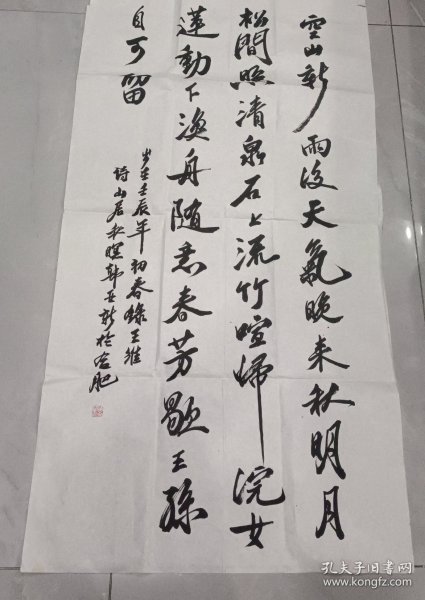 空山新雨後天氣晚来秋明月
松間照清泉石上流竹喧歸浣女
蓮動下渔舟随意春芳歇王孫
自可留
岁在壬辰年初春錄王維
詩山居秋暝韩新於合肥
孔夫子旧书网
www.kongfz.com